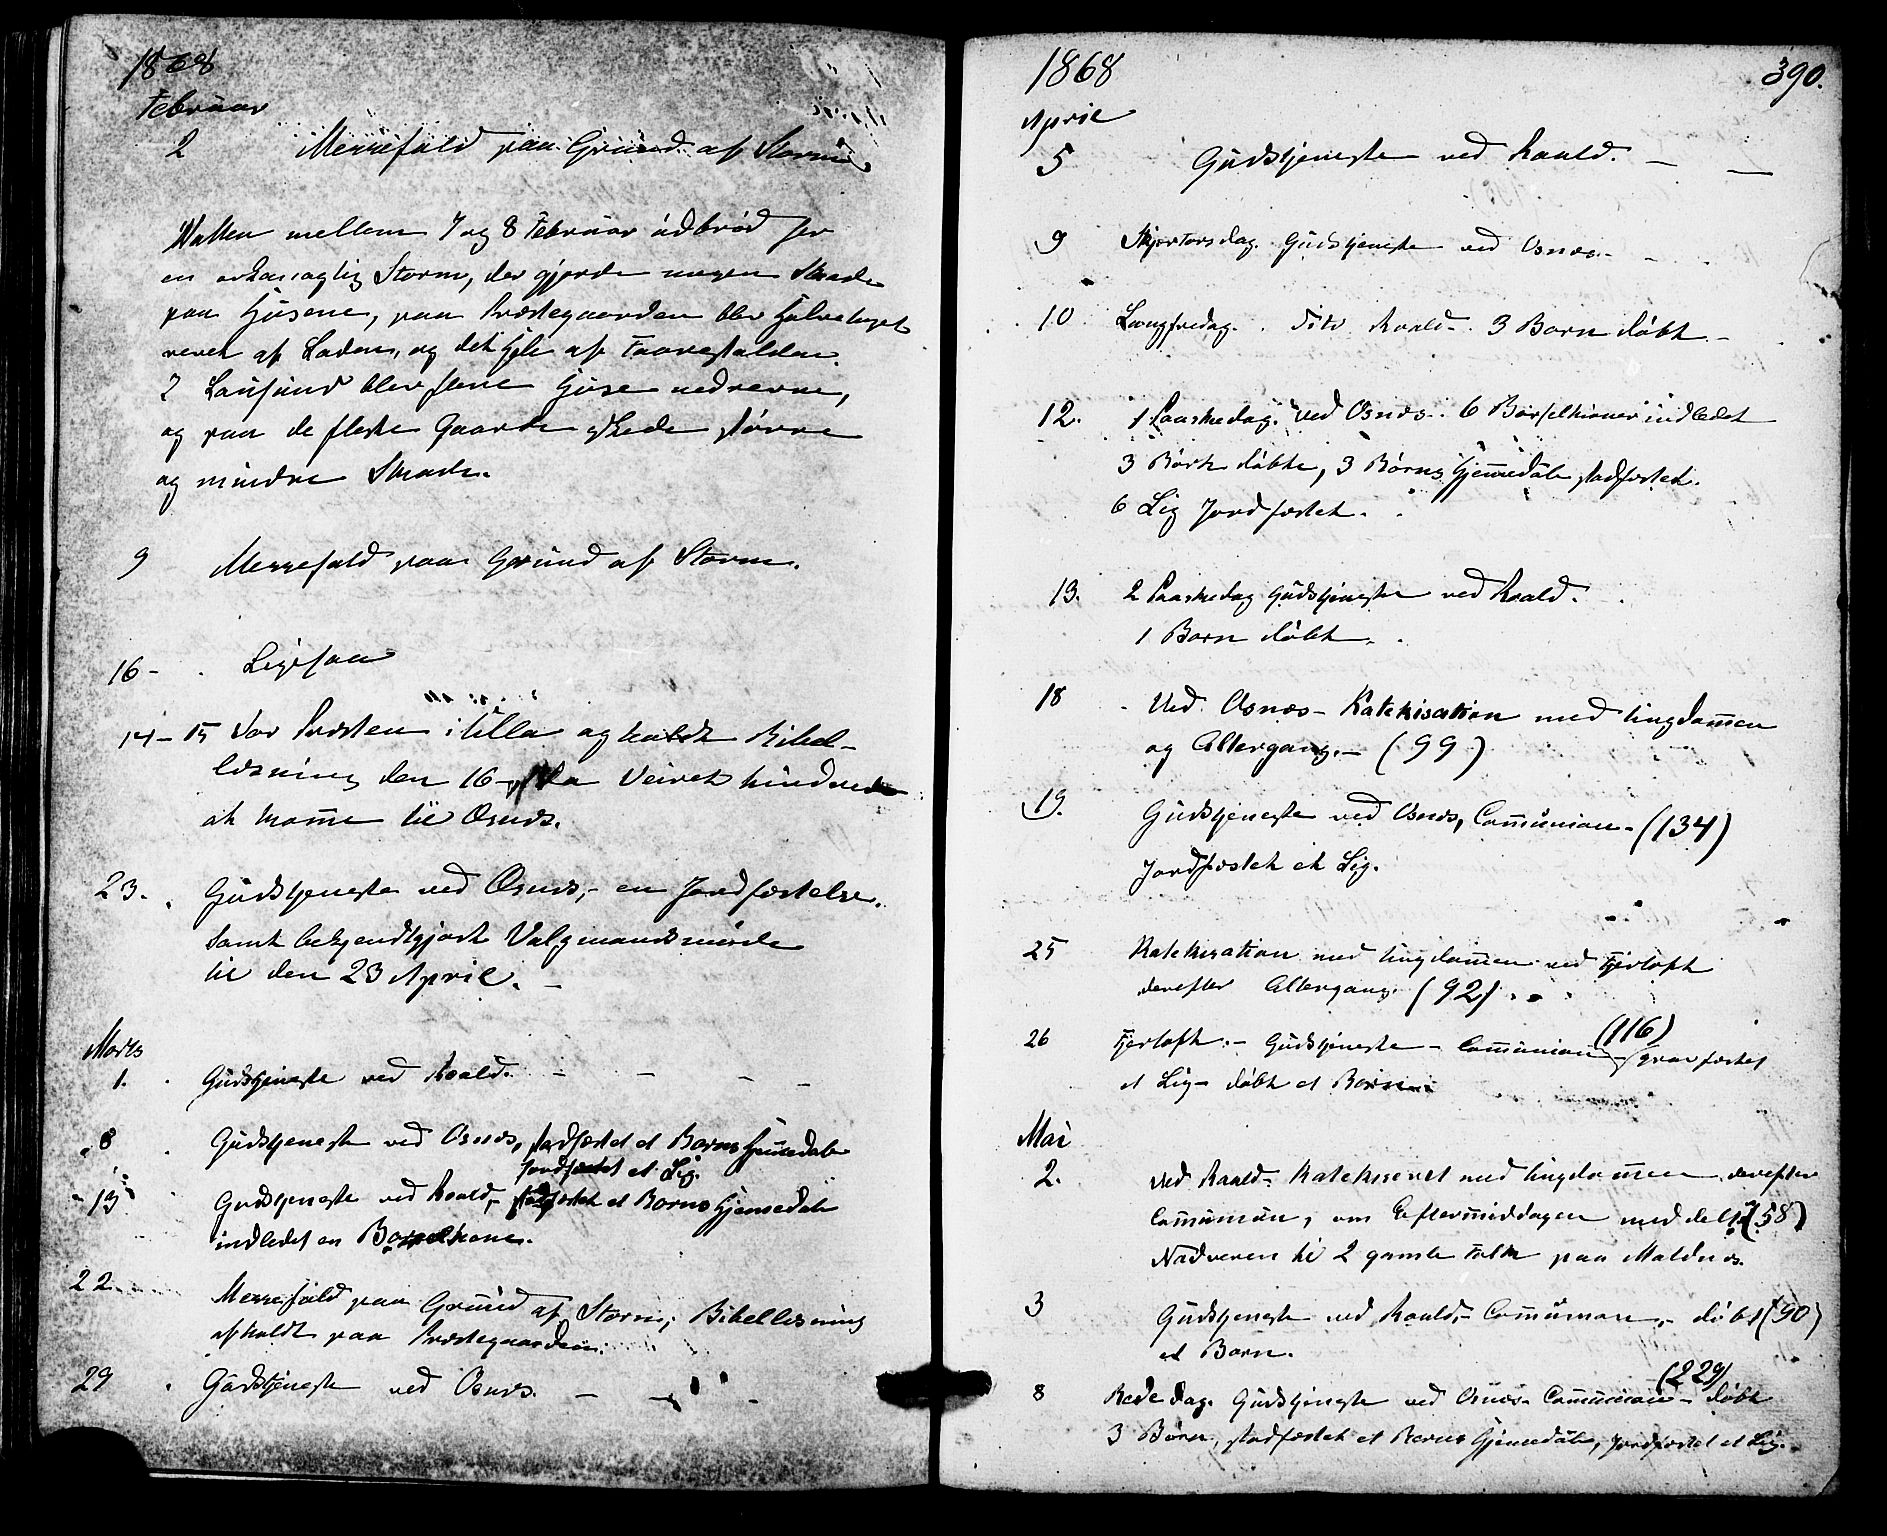 1868
Februar
2 Messefald paa Grund af Storm
Natten mellem 7 og 8 Februar udbrød her
en orkanagtig Storm, der gjorde megen Skade
paa Husene, paa Præstegaarden blev Halve taget
revet af Laden, og det Hele af Faarestalden.
I blev flere Huse nedrevne,
og paa de fleste Gaarde skede større
og mindre Skade.
9 Messefald paa Grund af Storm.
16 - Ligesaa
14-15 Var Præsten i Ulla og holdt Bibel-
læsning den 16 - da Veiret hindrede
at komme til Osnæs.
23. Gudstjeneste ved Osnæs, - en Jordfæstelse.
samt bekjendtgjort Valgmandsmøde
til den 23 April. -
Marts
1. Gudstjeneste ved Roald. - - - -
8 Gudstjeneste ved Osnæs, stadfæstet et Barns Hjemmedaab
Jordfæstet et Lig.
15 Gudstjeneste ved Roald, - stadfæstet et Barns Hjemmedaab
indledet en Barselkone.
22 Messefald paa Grund af Storm; Bibellæsning
afholdt paa Præstegaarden.
29 Gudstjeneste ved Osnæs. - -
1868 390.
April
5 Gudstjeneste ved Roald. - -
9 Skjærtorsdag. Gudstjeneste ved Osnæs. -
10 Langfredag. Dito Roald. 3 Børn døbt -
12. 1 Paaskedag. ved Osnæs. 6 Barselkoner indledet
3 Børn døbte, 3 Børns Hjemmedaab stadfæstet.
6 Lig Jordfæstet.
13. 2 Paaskedag Gudstjeneste ved Roald.
1 Barn døbt.
18 Ved Osnæs - Katekisation med Ungdommen
og Altergang. - (99)
19. Gudstjeneste ved Osnæs, Communion - (134)
Jordfæstet et Lig.
25 Katekisation med Ungdommen ved Fjørtoft
derefter Altergang. (92)
26 Fjørtoft. - Gudstjeneste - Communion (116) - gravfæstet
et Lig - døbt et Barn.
Mai
2. Ved Roald - Katekiseret med Ungdommen derefter
Communion, om Eftermiddagen meddelt (58)
Nadveren til 2 gamle Folk paa Molnæs.
3 Gudstjeneste ved Roald, - Communion, - døbt (90)
et Barn.
8 Bededag. Gudstjeneste ved Osnæs - Communion (229) - døbt
3 Børn, stadfæstet et Barns Hjemmedaab, Jordfæstet et Lig. -